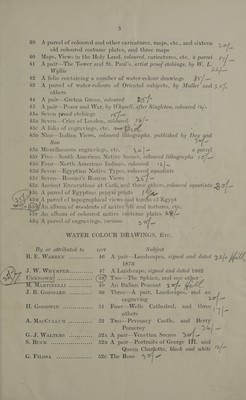 3
39 A parcel of coloured and other caricatures, maps, etc., and sixteen
old coloured costume plates, and three maps
40 Maps, Views in the Holy Land, coloured, caricatures, etc. a parcel
41 A pair—The Tower and St. Paul's, artist proof etchings, by W. L.
Wyllie
42 A folio containing a number of water-colour drawings
43 A parcel of water-colours of Oriental subjects, by Muller and
others
44 A pair—Gretna Green, coloured
45 A pair—Peace and War, by Whynell, after Singleton, coloured
45a Seven proof etchings
45b Seven—Cries of London, coloured
45c A folio of engravings, etc.
45d Nine—Indian Views, coloured lithographs, published by Day and
Son
45e Miscellaneous engravings, etc. a parcel
45f Five—South American Native Scenes, coloured lithographs
45g Four—North American Indians, coloured
45h Seven—Egyptian Native Types, coloured aquatints
45i Seven—Rossini's Roman Views
45j Ancient Excavations at Corfu, and three others, coloured aquatints
45k A parcel of Egyptian papyri prints
45l A parcel of topographical views and tombs of Egypt
45m An album of woodcuts of active life and tortures, etc.
45n An album of coloured active costume plates
45o A parcel of engravings, various
WATER COLOUR DRAWINGS, Etc.
By or attributed to LOT Subject
H. E. Warren 46 A pair—Landscapes, signed and dated
1873
H. W. Whymper 47 A Landscape, signed and dated 1883
Unknown 48 Two—The Sphinx, and one other
M. Martinelli 49 An Italian Peasant
J. B. Goddard 50 Three—A pair, Landscapes, and an
engraving
H. Goodwin 51 Four—Wells Cathedral, and three
others
A. MacCullum 52 Two—Pevensey Castle, and Henry
Pomeroy
G. J. Walters 52a A pair—Venetian Scenes
S. Buck 52b A pair—Portraits of George III. and
Queen Charlotte, black and white
G. Filosa 52c The Rose